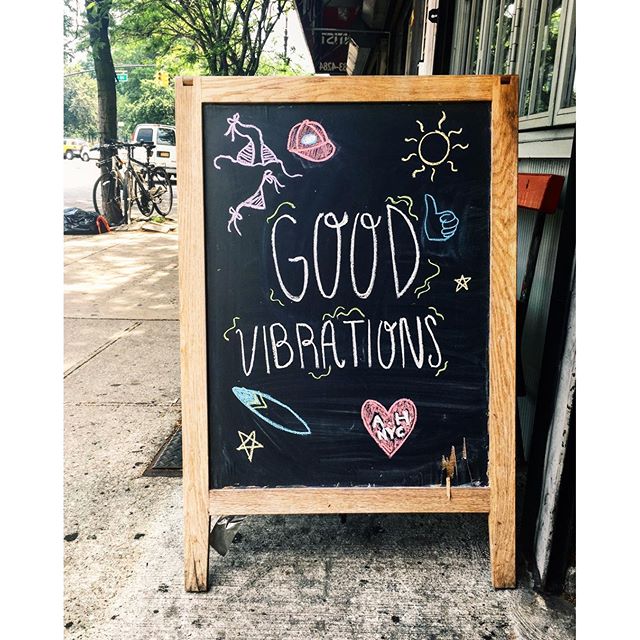 GOOD
VIBRATIONS
A♥H
NYC